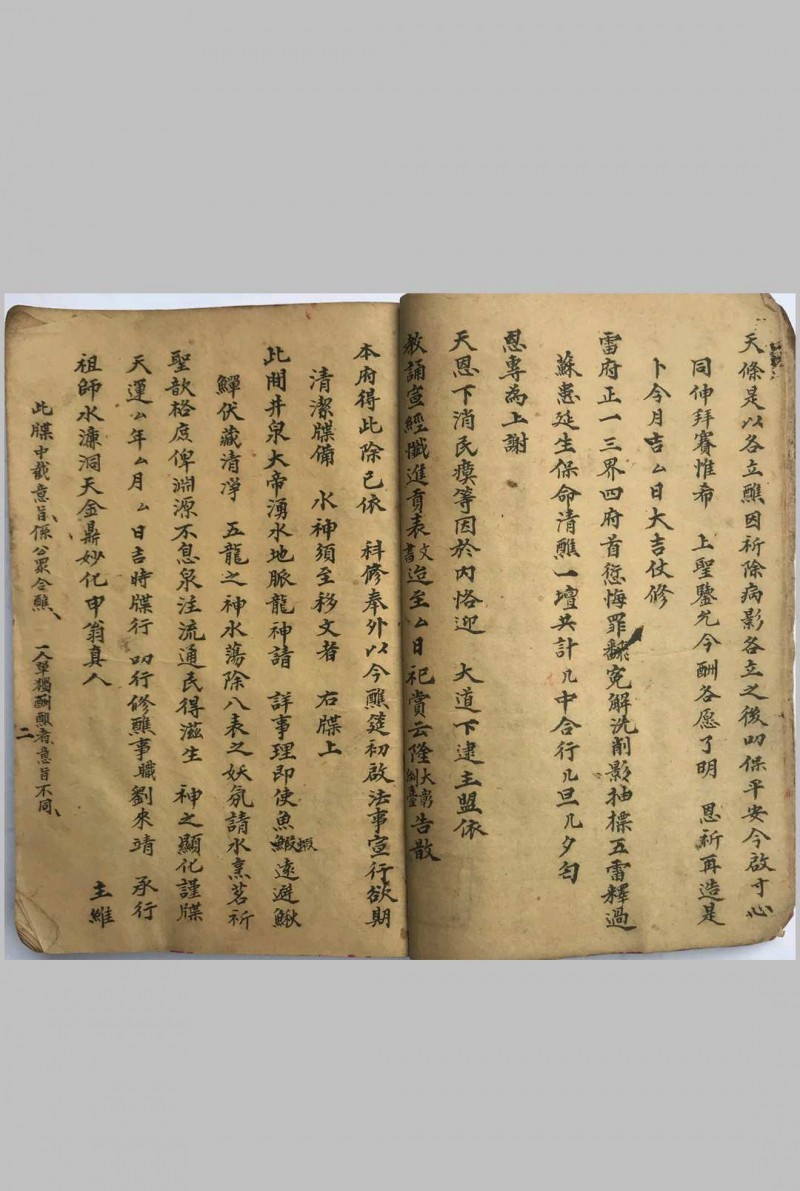 天條是以各立醮因祈除病影各立之後叨保平安今啟寸心
同伸拜賽惟希　上聖鑒允今酬各愿了明　恩祈再造是
卜今月吉ㄙ日大吉仗修
雷府正一三界四府首愆悔罪翻冤解洗削影抽標五雷釋過
蘇患延生保命清醮一壇共計几中合行几旦几夕匀
恩專為上謝
天恩下消民瘼等因於內恪迎　大道下逮主盟依
教誦宣經懺進貢表文書迄至ㄙ日祀賞云隆大彰告散
本府得此除已依　科修奉外以今醮筵初啟法事宣行欲期
清潔牒備　水神須至移文者　右牒上
此間井泉大帝湧水地脈龍神請　詳事理即使魚鰕蝦遠避鰍
鱓伏藏清凈　五龍之神水蕩除八表之妖氛請水烹茗祈
聖歆格庶俾淵源不息泉注流通民得滋生　神之顯化謹牒
天運ㄙ年ㄙ月ㄙ日吉時牒行　叨行修醮事職劉來靖　承行
主維
祖師水濂洞天金鼎妙化申翁真人
此牒中載意旨係公眾合醮、　一人單獨酬醮者意旨不同、
二